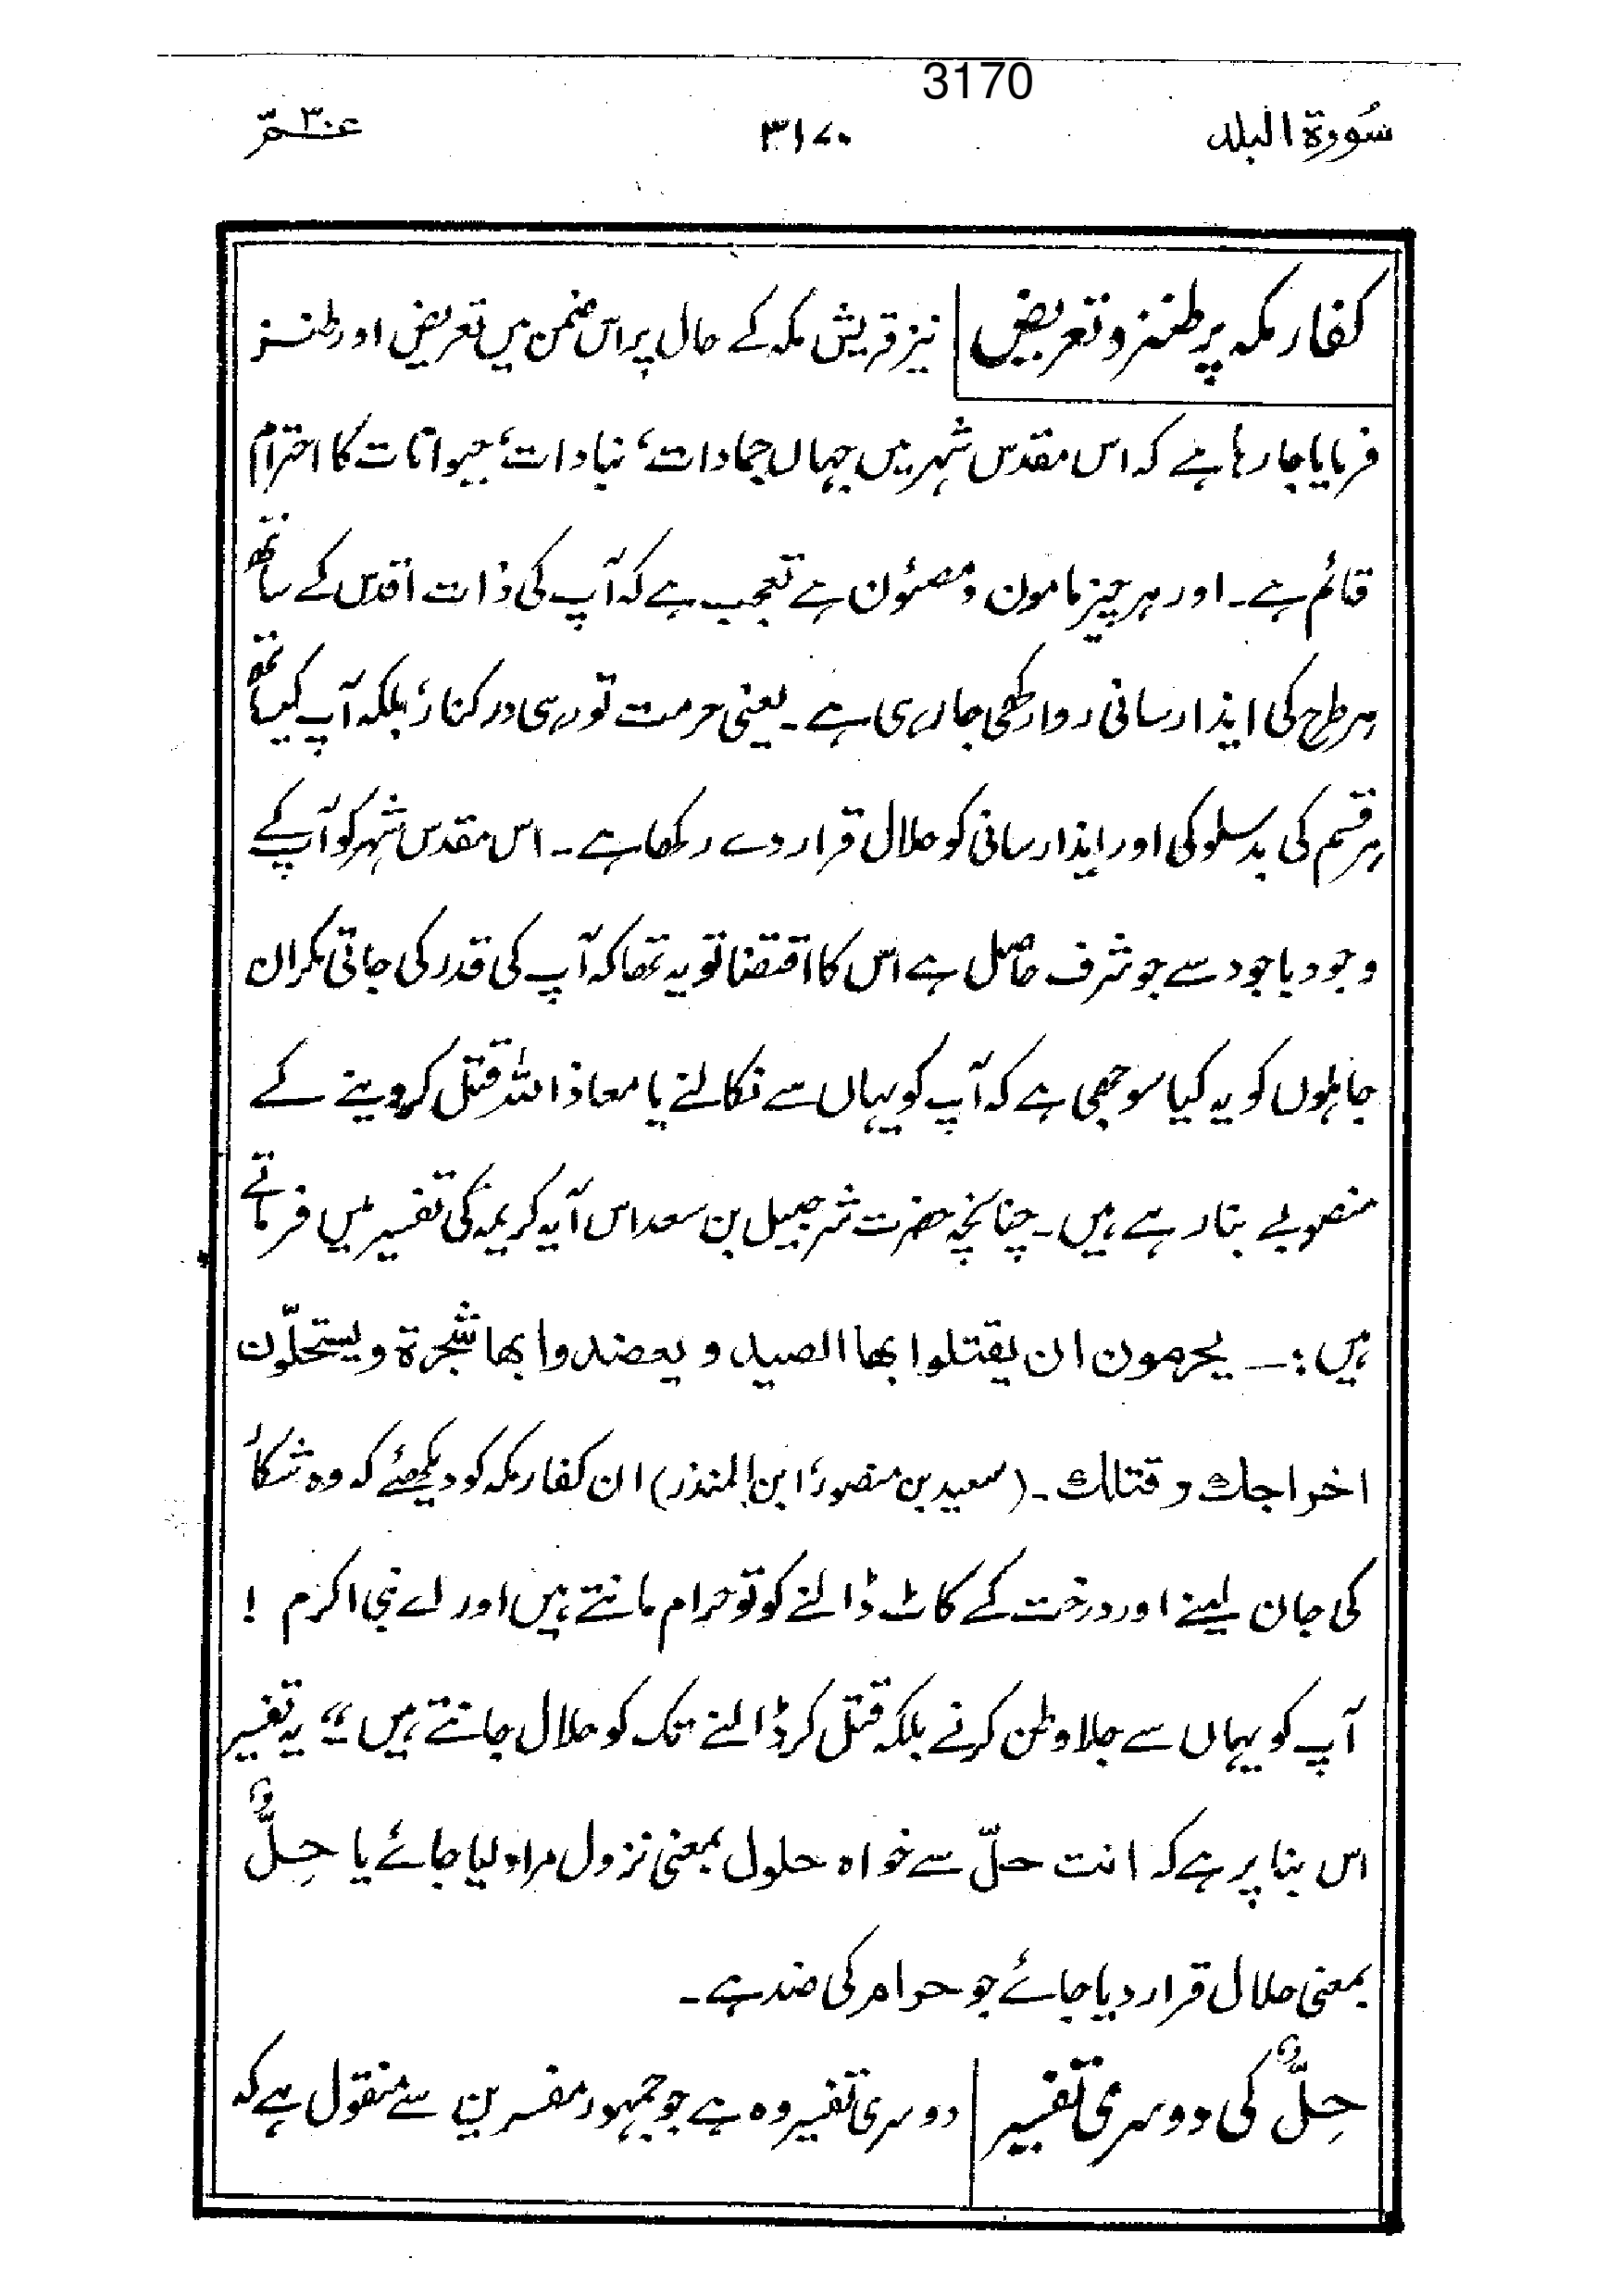 3170
سُورة البلد ۳۱۷۰ عـــمّ ۳۰
کفار مکہ پر طنز و تعریض نیز قریش مکہ کے حال پر اس ضمن میں تعریض اور طنز
فرمایا جا رہا ہے کہ اس مقدس شہر میں جہاں جمادات، نبادات، حیوانات کا احترام
قائم ہے۔ اور ہر چیز مامون و مصئون ہے تعجب ہے کہ آپ کی ذات اقدس کے ساتھ
ہر طرح کی ایذا رسانی روا رکھی جا رہی ہے۔ یعنی حرمت تو رہی درکنار، بلکہ آپ کیساتھ
ہر قسم کی بدسلوکی اور ایذا رسانی کو حلال قرار دے رکھا ہے۔ اس مقدس شہر کو آپ کے
وجود باجود سے جو شرف حاصل ہے اس کا اقتضا تو یہ تھا کہ آپ کی قدر کی جاتی مگر ان
جاہلوں کو یہ کیا سوجھی ہے کہ آپ کو یہاں سے نکالنے یا معاذ اللہ قتل کر دینے کے
منصوبے بنا رہے ہیں۔ چنانچہ حضرت شرجیل بن سعد اس آیہ کریمہ کی تفسیر میں فرماتے
ہیں :۔ یحرمون ان یقتلوا بها الصید و یعضدوا بها شجرة و یستحلّون
اخراجك و قتالك۔ (سعید بن منصور، ابن المنذر) ان کفار مکہ کو دیکھئے کہ وہ شکار
کی جان لینے اور درخت کے کاٹ ڈالنے کو تو حرام مانتے ہیں اور اے نبی اکرم !
آپ کو یہاں سے جلاوطن کرنے بلکہ قتل کر ڈالنے تک کو حلال جانتے ہیں ‘‘ یہ تفسیر
اس بنا پر ہے کہ انت حلّ سے خواہ حلول بمعنی نزول مراد لیا جائے یا حِلٌّ
بمعنی حلال قرار دیا جائے جو حرام کی ضد ہے۔
حِلٌّ کی دوسری تفسیر دوسری تفسیر وہ ہے جو جمہور مفسرین سے منقول ہے کہ